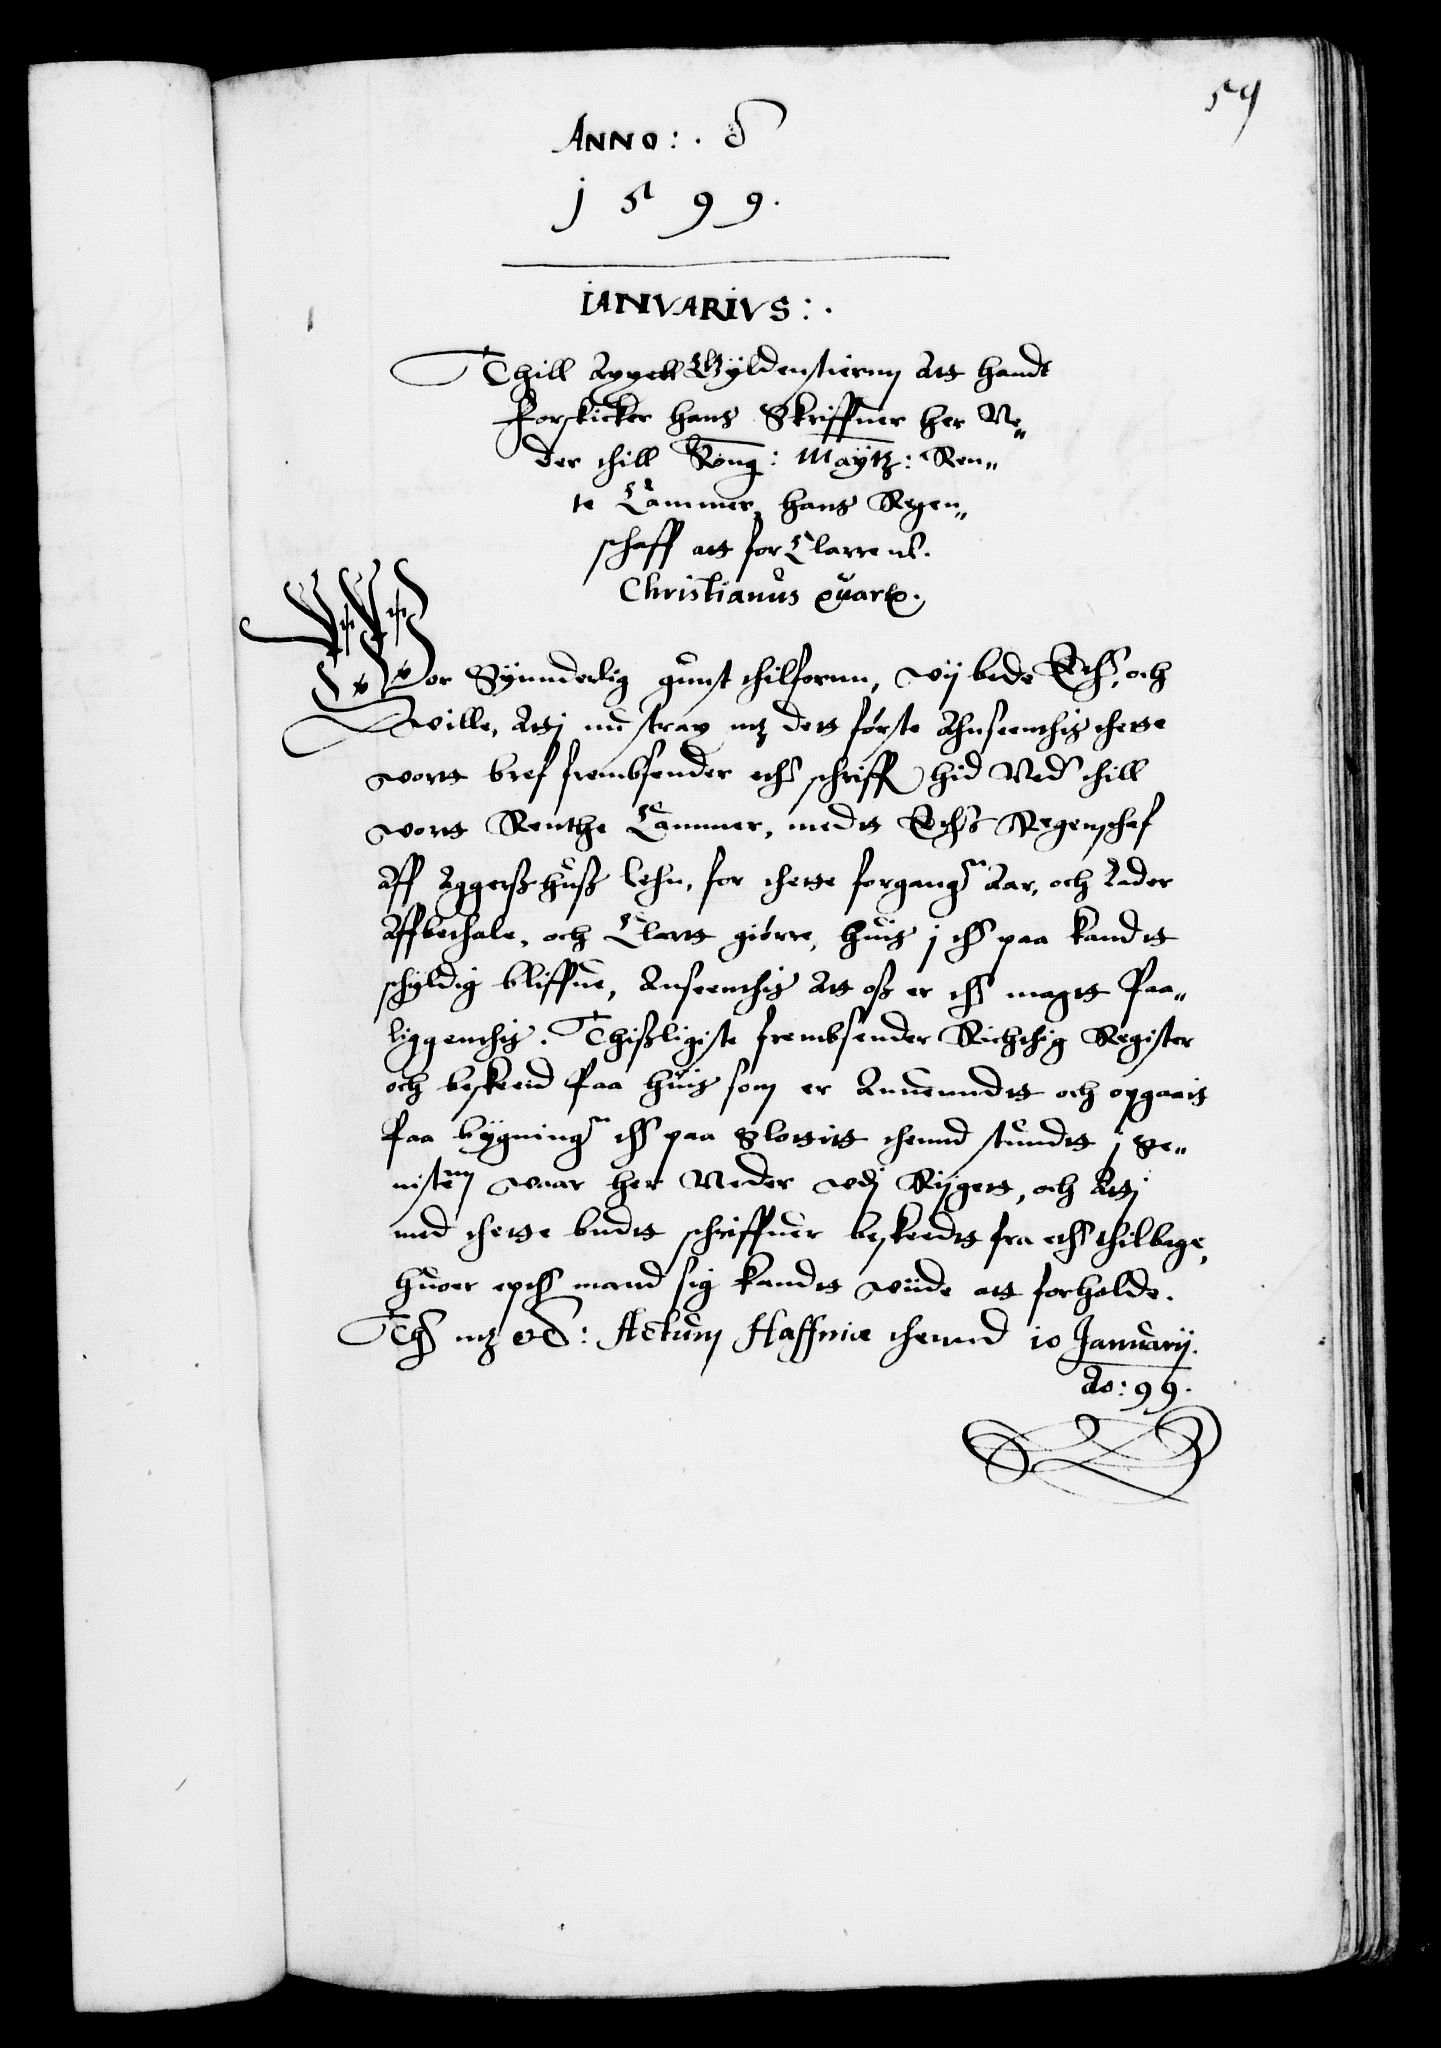 59
ANNO:. d
1599.
IANVARIVS:.
Thill Axxell Gÿldenstiernn Att handt
forskicker hans Skriffuer her Ne„
der thill Kong: Maÿtz: Ren„
te Cammer, hans Regen„
schaff att for Clarrend.
Christianus quart9.
Wor Sÿnnderlig gunst thilfornn, Wij bede Eth, och
wille, Atj nu strax mz dett første Ahnseendis thette
wort bref frembsender eth schriffr hid Ned thill
wortt Renthe Cammer, medt Eths Regenschaf
Aff Aggerszhusz Lehn, for thette forgangn Aar, och Lader
Affbethale, och Clart giørre, huis j th paa kandt
schyldig bliffue, Anseendis Att osz er th magtt Paa„
liggendis. Thiszligiste frembsender Richthig Register
och beskeed Paa huis som er Anuenndt och opgaais
Paa bygningn th paa Slottitt thennd stundt j Se„
nistenn waar her Neder wdj Rijgett, och Atj
med thette budt schriffuer beskeedt fra eth thilbage,
huor epth mand sig kandt wiide att forholde.
Th mz etc: Actum Haffniæ thennd 10 Januarij.
Ao: 99.